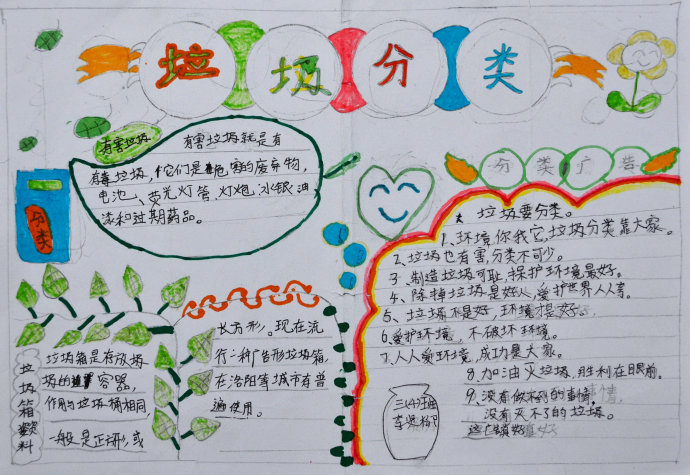 垃圾分类
有害垃圾
有害垃圾就是有
有毒垃圾,它们是危害的废弃物,
电池、荧光灯管、灯炮、水银、油
漆和过期药品。
分类
分类广告
垃圾要分类。
1、环境你我它,垃圾分类靠大家。
2、垃圾也有害,分类不可少。
3、制造垃圾可耻,保护环境最好。
4、除掉垃圾是好人,爱护世界人人享。
5、垃圾不是好,环境才是好。
6、爱护环境,不破坏环境。
7、人人爱环境,成功是大家。
8、加油灭垃圾,胜利在眼前。
9、没有做不到的事情,
没有灭不了的垃圾。
垃圾箱资料
垃圾箱是存放垃
圾的容器,
作用与垃圾桶相同,
一般是正方形,或
长方形。现在流
行一种广告形垃圾箱,
在洛阳等城市有普
遍使用。
三(4)班